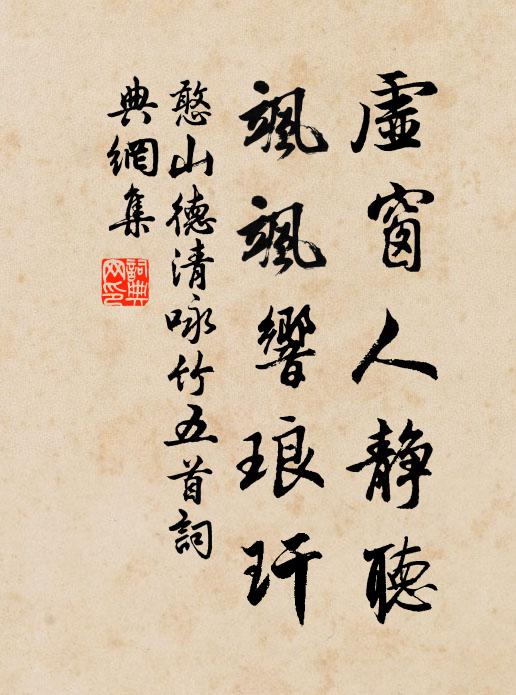 虛窗人靜聽
颯颯響琅玕
憨山德清咏竹五首詞
典網集
詞典网印